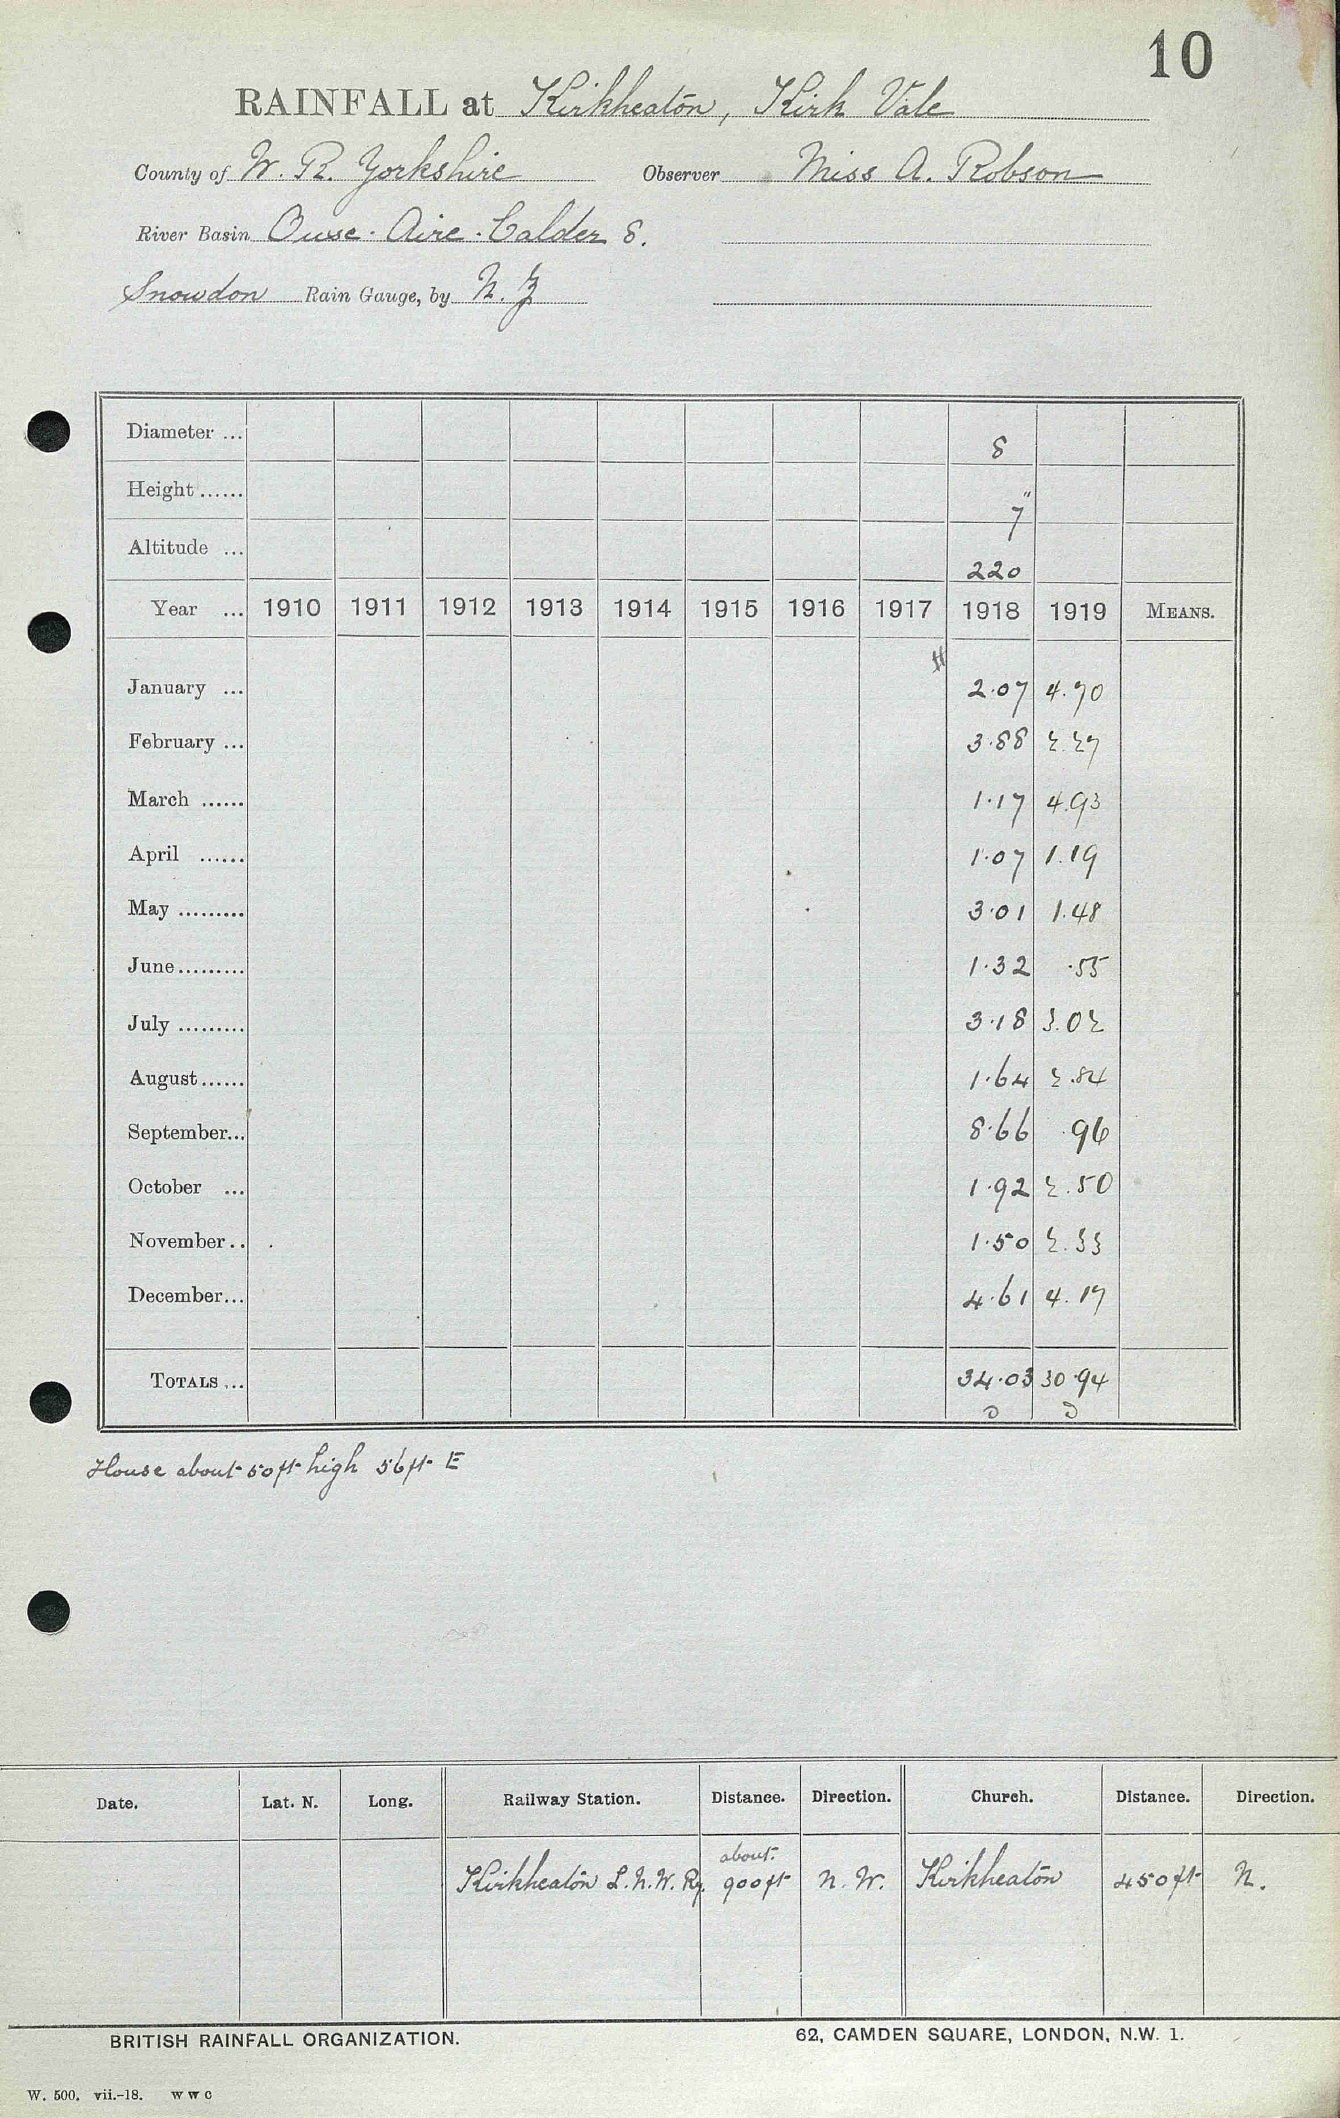 10
RAINFALL at Kirkheaton, Kirk Vale
County of W. R. Yorkshire Observer Miss A. Robson
River Basin Ouse · Aire · Calder 8.
Snowdon Rain Gauge, by N. Z
Diameter ... 8
Height ...... 7"
Altitude ... 220
Year ... 1910 1911 1912 1913 1914 1915 1916 1917 1918 1919 MEANS.
January ... 2·07 4.70
February ... 3·88 2.27
March ...... 1·17 4.93
April ...... 1·07 1.19
May ......... 3·01 1.48
June ......... 1·32 ·55
July ......... 3·18 3.02
August ...... 1·64 2.84
September... 8·66 .96
October ... 1·92 2.50
November .. 1·50 2.33
December... 4·61 4.17
TOTALS ... 34·03 30·94
House about 50ft high 56ft E
Date. Lat. N. Long. Railway Station. Distance. Direction. Church. Distance. Direction.
Kirkheaton L.N.W. Ry. about 900ft N.W. Kirkheaton 450ft N.
BRITISH RAINFALL ORGANIZATION. 62, CAMDEN SQUARE, LONDON, N.W. 1.
W. 500. vii.-18. W W C